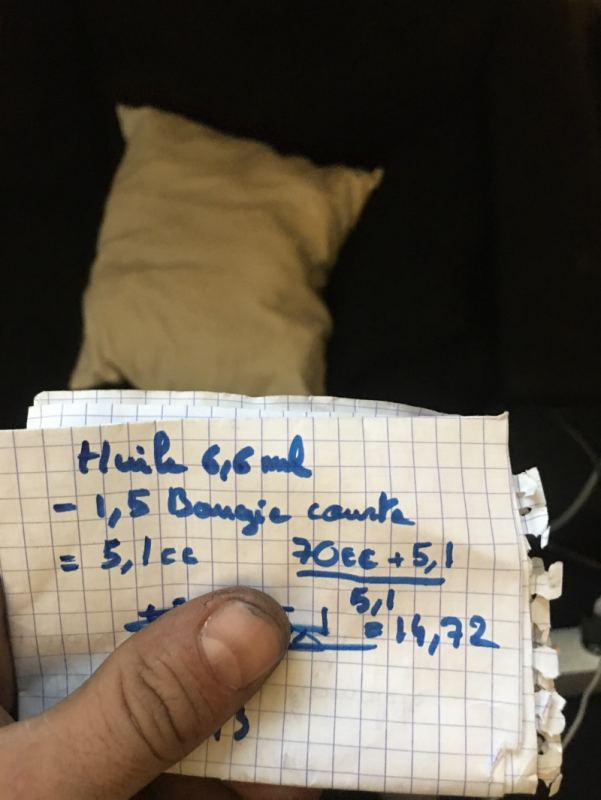 Huile 6,6 ml
- 1,5 Bougie courte
= 5,1cc
70cc + 5,1
5,1
= 14,72